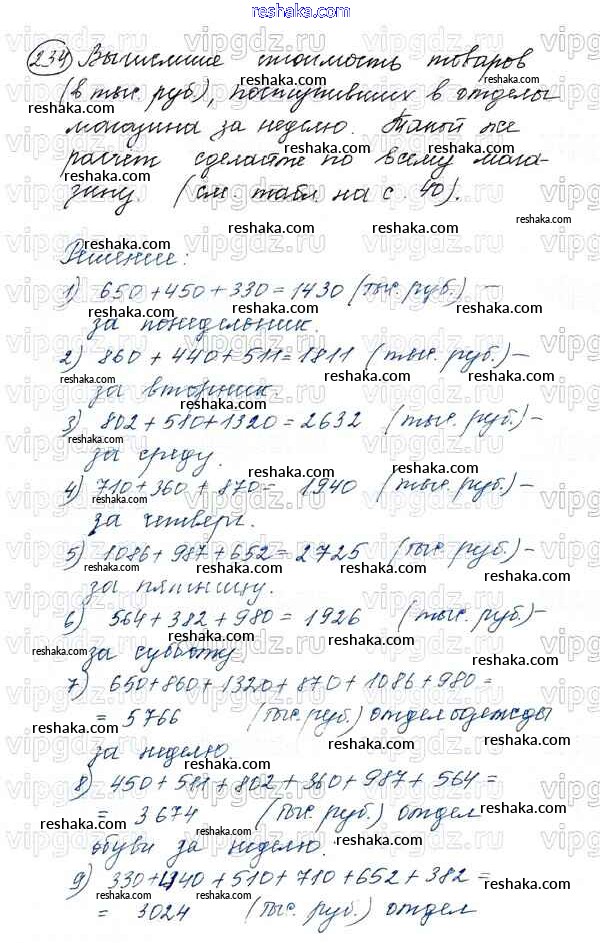 reshaka.com
234 Вычислите стоимость товаров
(в тыс. руб), поступивших в отделы
магазина за неделю. Такой же
расчет сделайте по всему мага-
зину. (см. табл. на с. 40).
Решение:
1) 650+450+330=1430 (тыс. руб.) –
за понедельник.
2) 860+440+511=1811 (тыс. руб.) –
за вторник.
3) 802+510+1320=2632 (тыс. руб.) –
за среду.
4) 710+360+870= 1940 (тыс. руб.) –
за четверг.
5) 1086+987+652=2725 (тыс. руб.) –
за пятницу.
6) 564+382+980= 1926 (тыс. руб.) –
за субботу.
7) 650+860+1320+870+1086+980=
= 5766 (тыс. руб.) отдел одежды
за неделю
8) 450+581+802+360+987+564=
= 3674 (тыс. руб.) отдел
обуви за неделю.
9) 330+440+510+710+652+382=
= 3024 (тыс. руб.) отдел
reshaka.com
vipgdz.ru